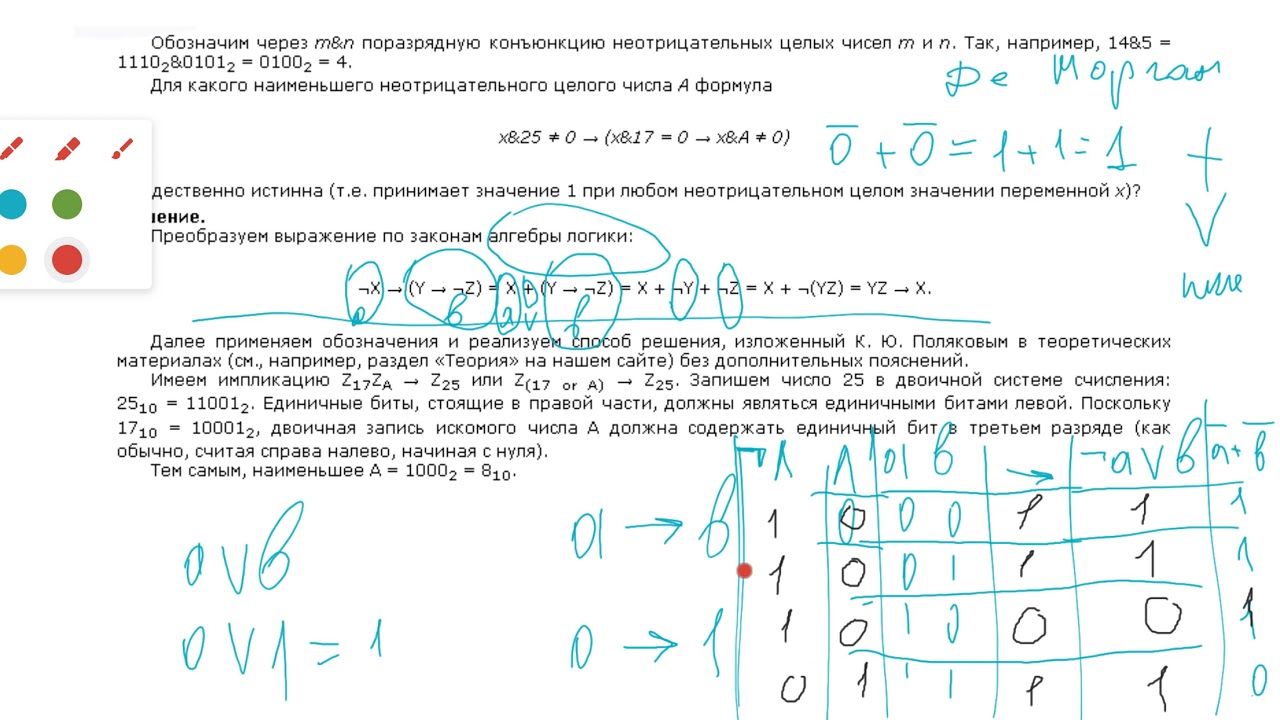 Обозначим через m&n поразрядную конъюнкцию неотрицательных целых чисел m и n. Так, например, 14&5 =
1110₂&0101₂ = 0100₂ = 4.
Де Морган
Для какого наименьшего неотрицательного целого числа A формула
x&25 ≠ 0 → (x&17 = 0 → x&A ≠ 0)
0̅ + 0̅ = 1 + 1 = 1
+
дественно истинна (т.е. принимает значение 1 при любом неотрицательном целом значении переменной x)?
V
ение.
Преобразуем выражение по законам алгебры логики:
¬X → (Y → ¬Z) = X + (Y → ¬Z) = X + ¬Y + ¬Z = X + ¬(YZ) = YZ → X.
или
a в a V в
Далее применяем обозначения и реализуем способ решения, изложенный К. Ю. Поляковым в теоретических
материалах (см., например, раздел «Теория» на нашем сайте) без дополнительных пояснений.
Имеем импликацию Z₁₇Z_A → Z₂₅ или Z₍₁₇ or A₎ → Z₂₅. Запишем число 25 в двоичной системе счисления:
25₁₀ = 11001₂. Единичные биты, стоящие в правой части, должны являться единичными битами левой. Поскольку
17₁₀ = 10001₂, двоичная запись искомого числа A должна содержать единичный бит в третьем разряде (как
обычно, считая справа налево, начиная с нуля).
Тем самым, наименьшее A = 1000₂ = 8₁₀.
a V в
0 V 1 = 1
a → в
0 → 1
¬Λ Λ a в → ¬a V в a̅ + в̅
1 0 0 0 1 1 1
1 0 0 1 1 1 1
1 0 1 0 0 0 1
0 1 1 1 1 1 0